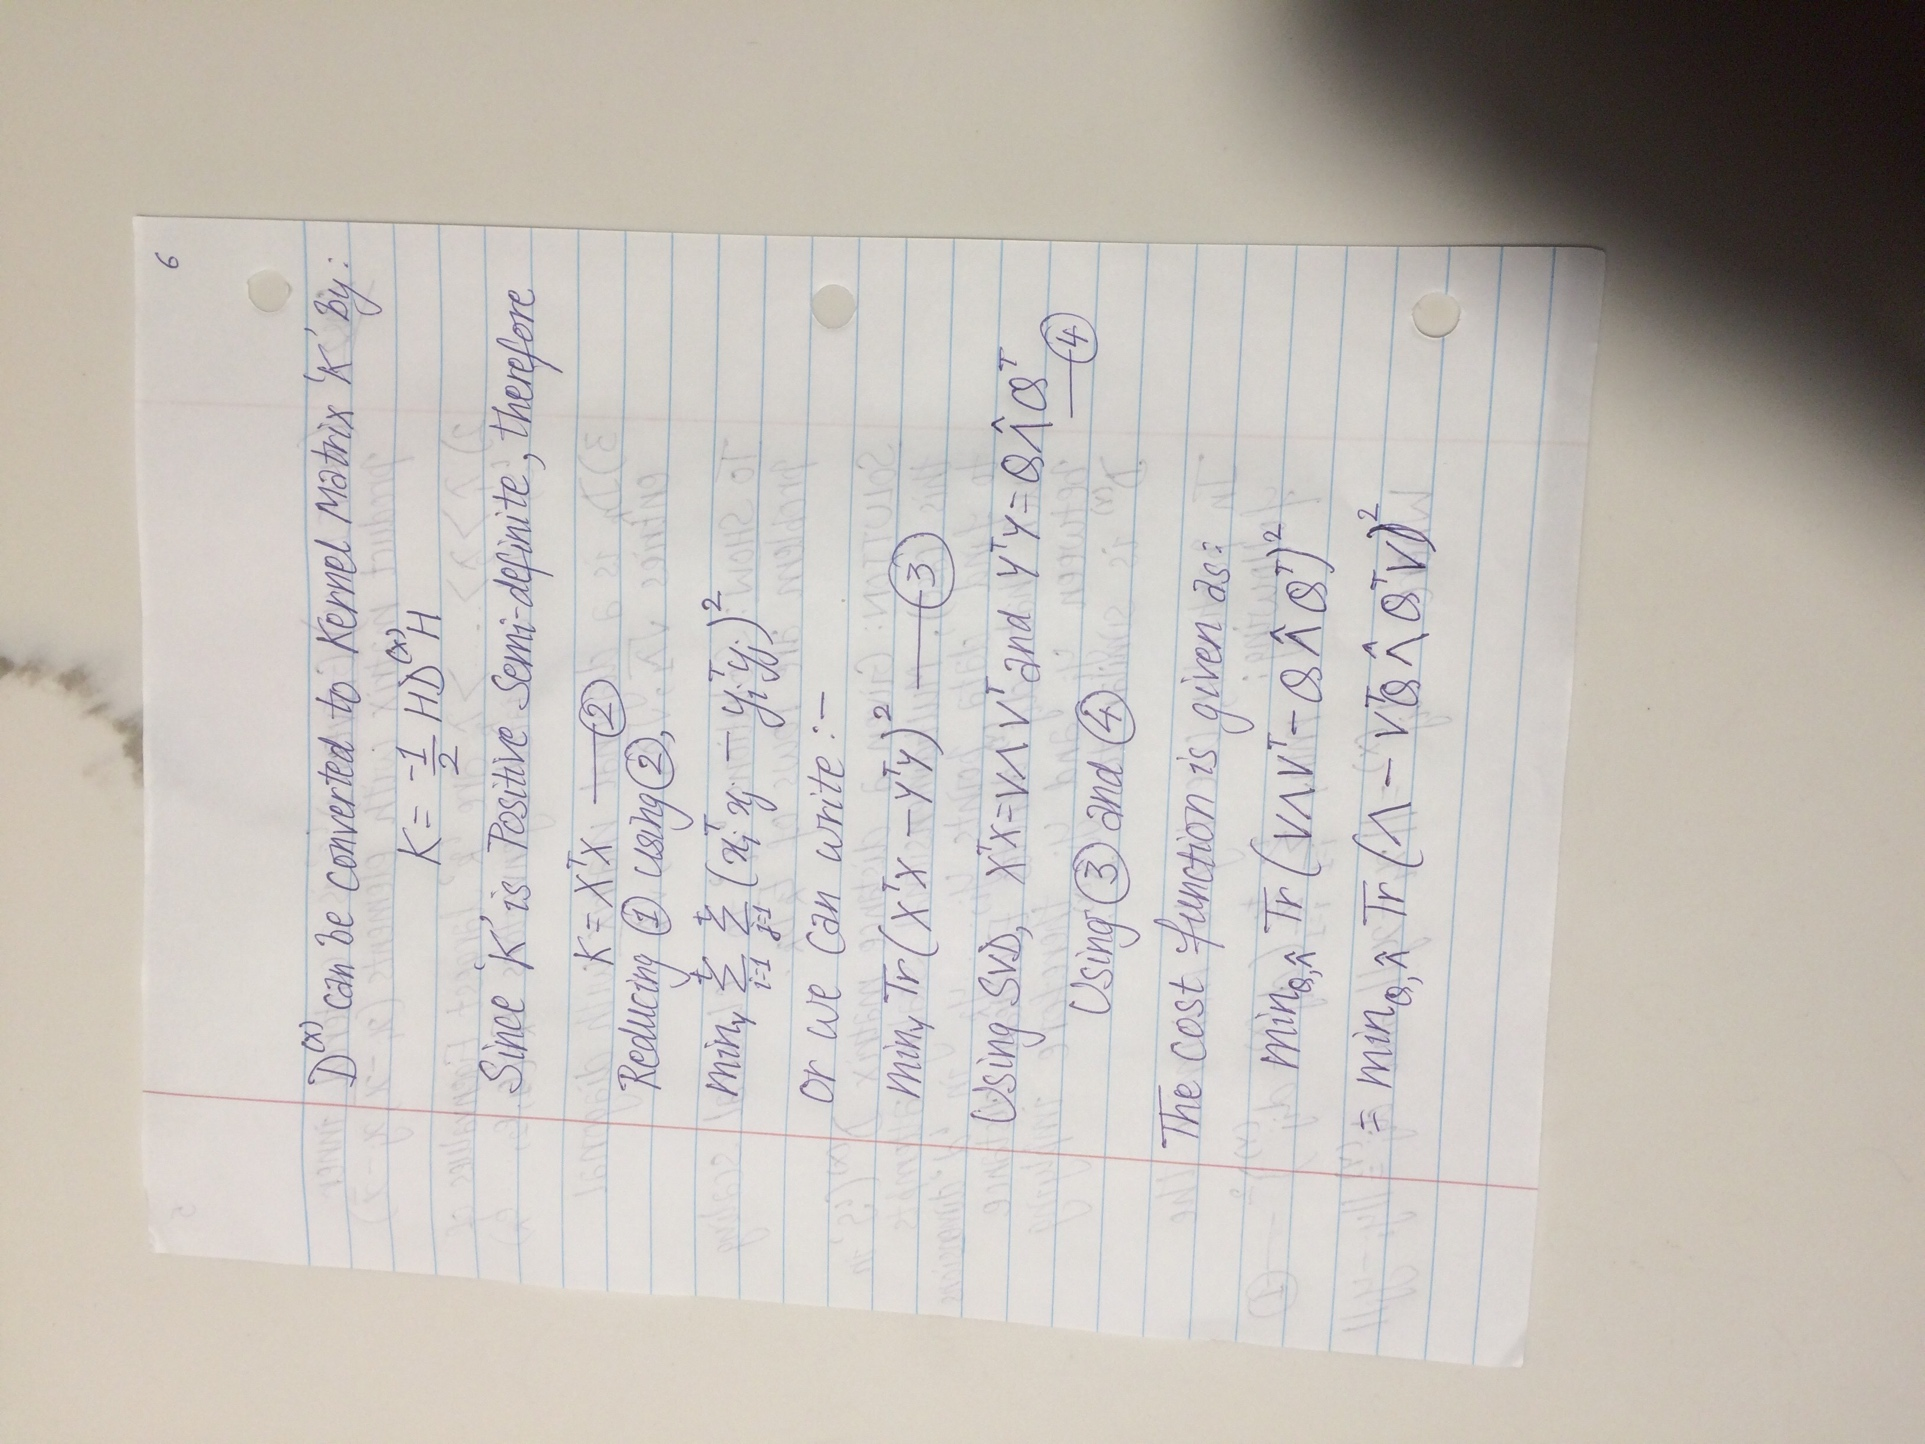 6
D^(x) can be converted to Kernel Matrix 'K' by:
K = -1/2 HD^(x)H
Since 'K' is Positive Semi-definite, therefore
K = X^T X —— (2)
Reducing (1) using (2),
min_Y Σ_{i=1}^t Σ_{j=1}^t (x_i^T x_j - y_i^T y_j)^2
or we can write :-
min_Y Tr(X^T X - Y^T Y)^2 —— (3)
Using SVD, X^T X = VΛV^T and Y^T Y = QΛ̂Q^T
—— (4)
Using (3) and (4)
The cost function is given as:
min_{Q,Λ̂} Tr(VΛV^T - QΛ̂Q^T)^2
= min_{Q,Λ̂} Tr(Λ - V^T QΛ̂Q^T V)^2